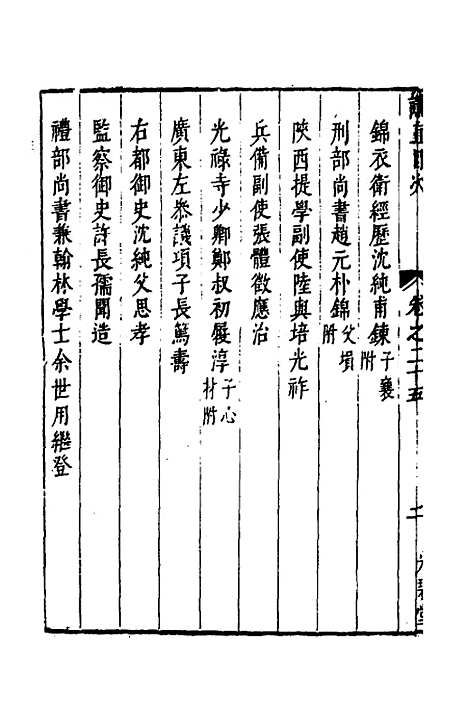 卷之二十五
二
錦衣衛經歷沈純甫鍊子襄附
刑部尚書趙元朴錦父塤附
陝西提學副使陸與培光祚
兵備副使張體徵應治
光祿寺少卿鄭叔初履淳子心材附
廣東左叅議項子長篤壽
右都御史沈純父思孝
監察御史許長孺聞造
禮部尚書兼翰林學士余世用繼登